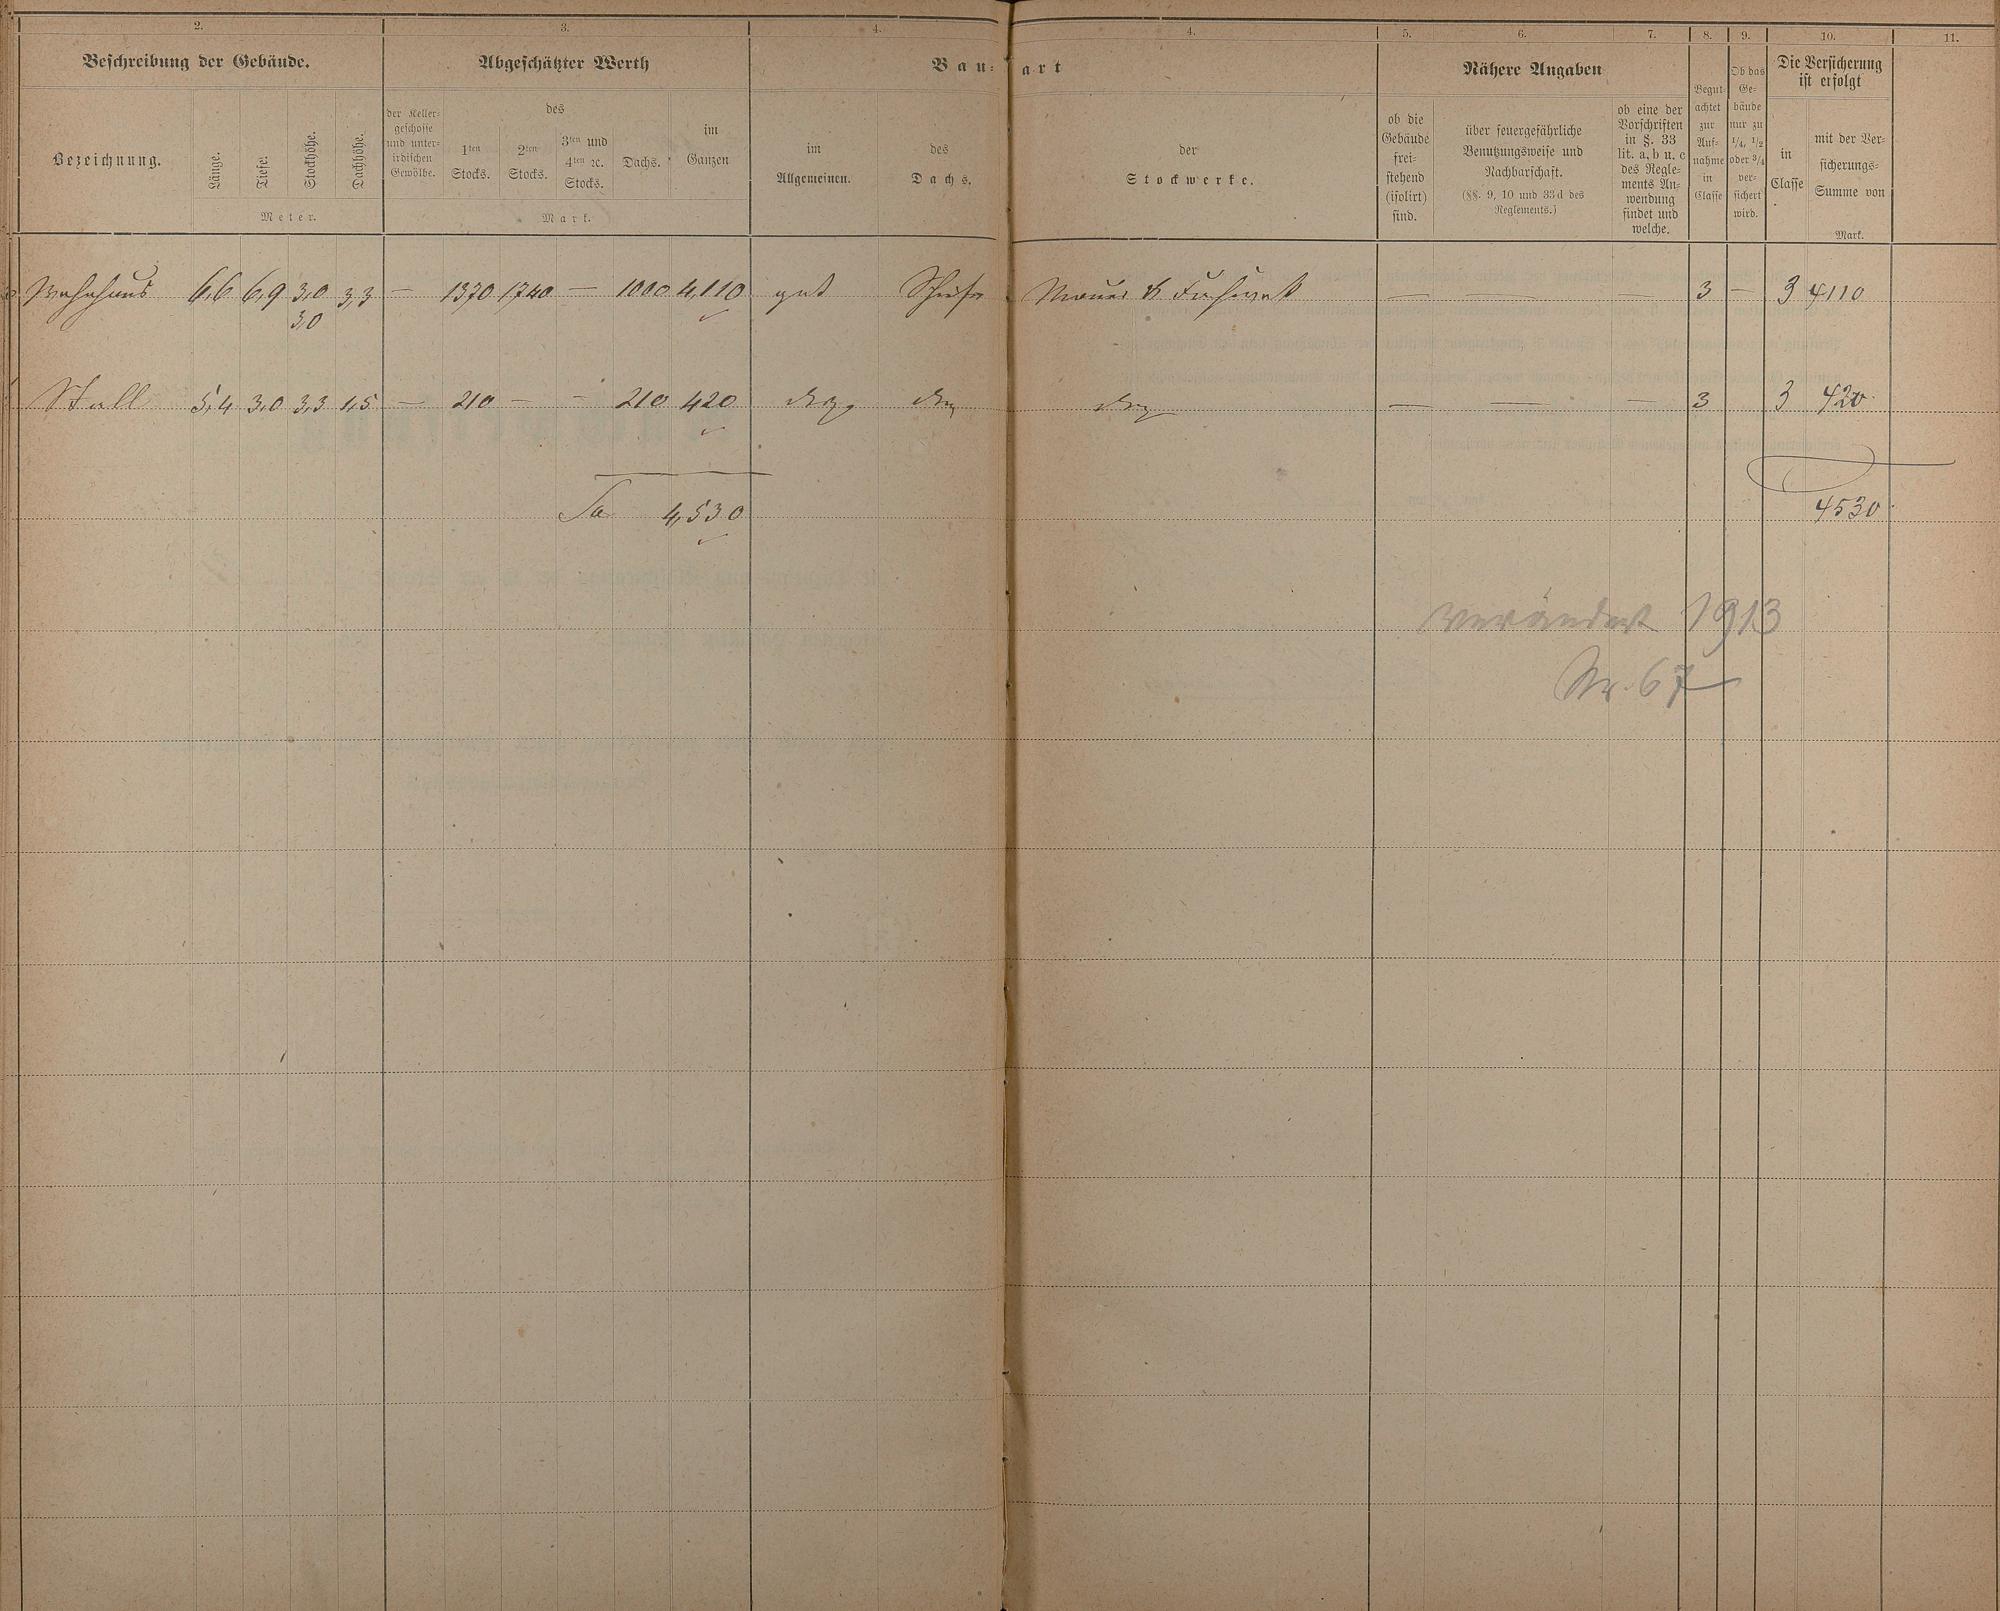 2. 3. 4. 4. 5. 6. 7. 8. 9. 10. 11.
Beschreibung der Gebäude. Abgeschätzter Werth Bau= art Nähere Angaben
Die Versicherung
ist erfolgt
Bezeichnung. Länge. Tiefe. Stockhöhe. Dachhöhe.
Meter.
der Keller=
geschosse
und unter=
irdischen
Gewölbe.
des
1ten
Stocks.
2ten
Stocks.
3ten und
4ten ꝛc.
Stocks.
Dachs.
im
Ganzen
Mark.
im
Allgemeinen.
des
Dachs.
der
Stockwerke.
ob die
Gebäude
frei=
stehend
(isolirt)
sind.
über feuergefährliche
Benutzungsweise und
Nachbarschaft.
(§§. 9, 10 und 33d des
Reglements.)
ob eine der
Vorschriften
in §. 33
lit. a, b u. c
des Regle=
ments An=
wendung
findet und
welche.
Begut
achtet
zur
Auf=
nahme
in
Classe
Ob das
Ge=
bäude
nur zu
1/4, 1/2
oder 3/4
ver=
sichert
wird.
in
Classe
mit der Ver=
sicherungs=
Summe von
Mark.
Wohnhaus 6,6 6,9 3,0 3,3 — 1370 1740 — 1000 4,110 gut Schiefer Mauer & Fachwerk — — — 3 — 3 4110
3,0
Stall 5,4 3,0 3,3 1,5 — 210 — - 210 420 desgl desgl desgl — — — 3 3 420
Sa 4,530 4530
verändert 1913
Nr. 67